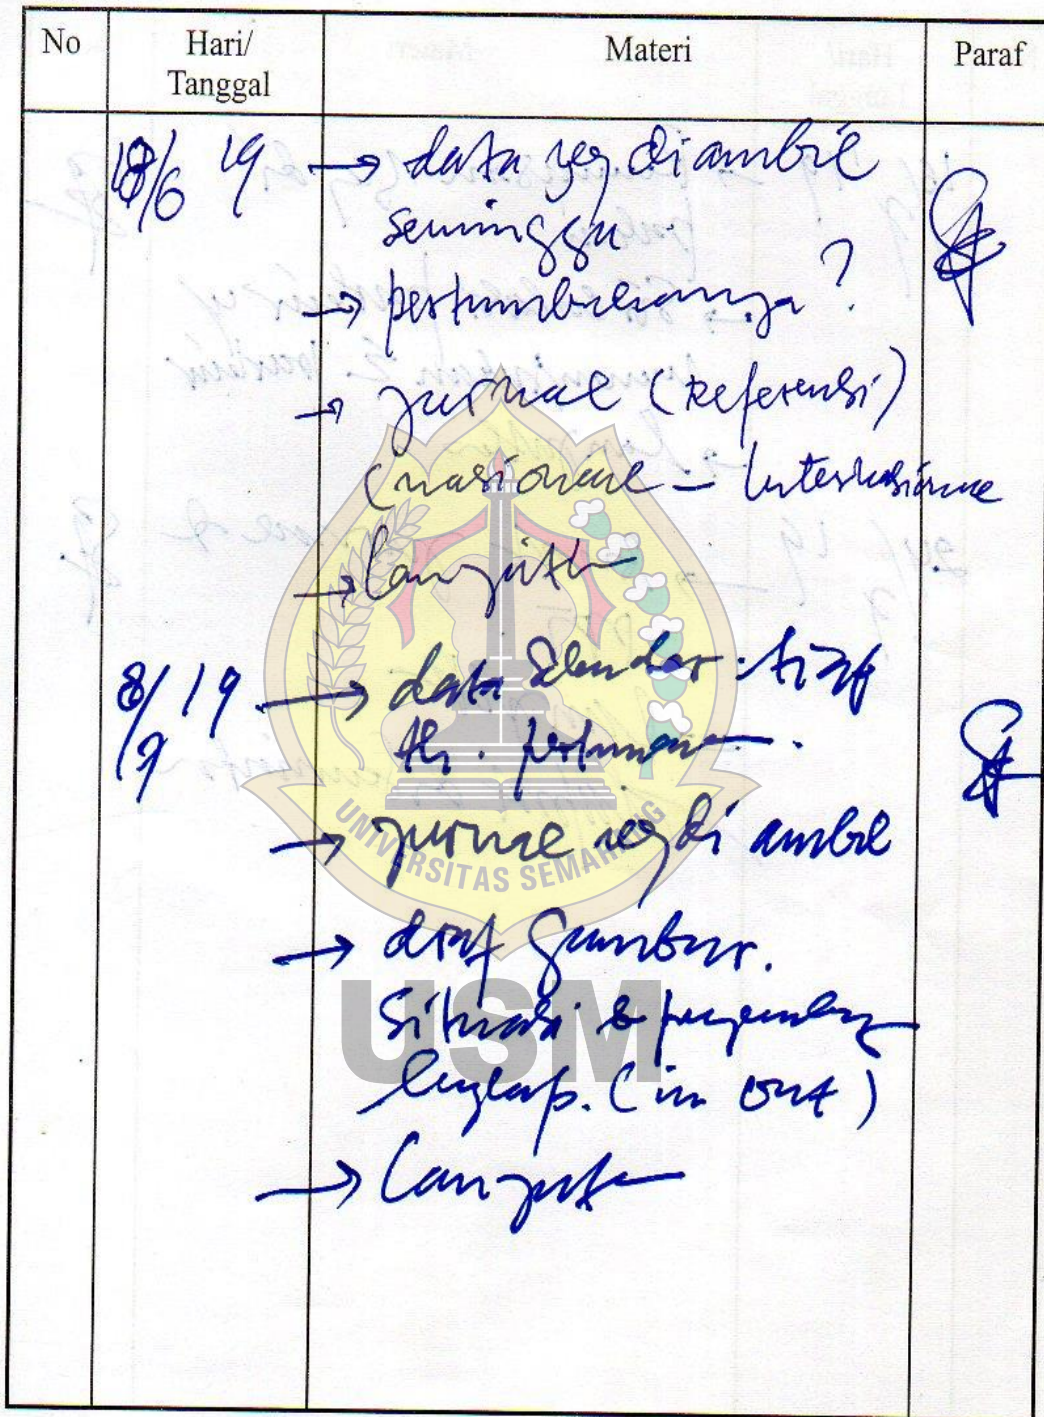 No Hari/ Materi Paraf
Tanggal
18/6 19 → data yg diambil
seminggu
→ pertumbuhannya ?
→ jurnal (Referensi)
(nasional - Internasional
→ lanjutk
8/7 19 → data tiap
th.
→ jurnal yg di ambil
→ draf Gambar.
Situasi &
lengkap. (in out)
→ lanjutk
UNIVERSITAS SEMARANG
USM